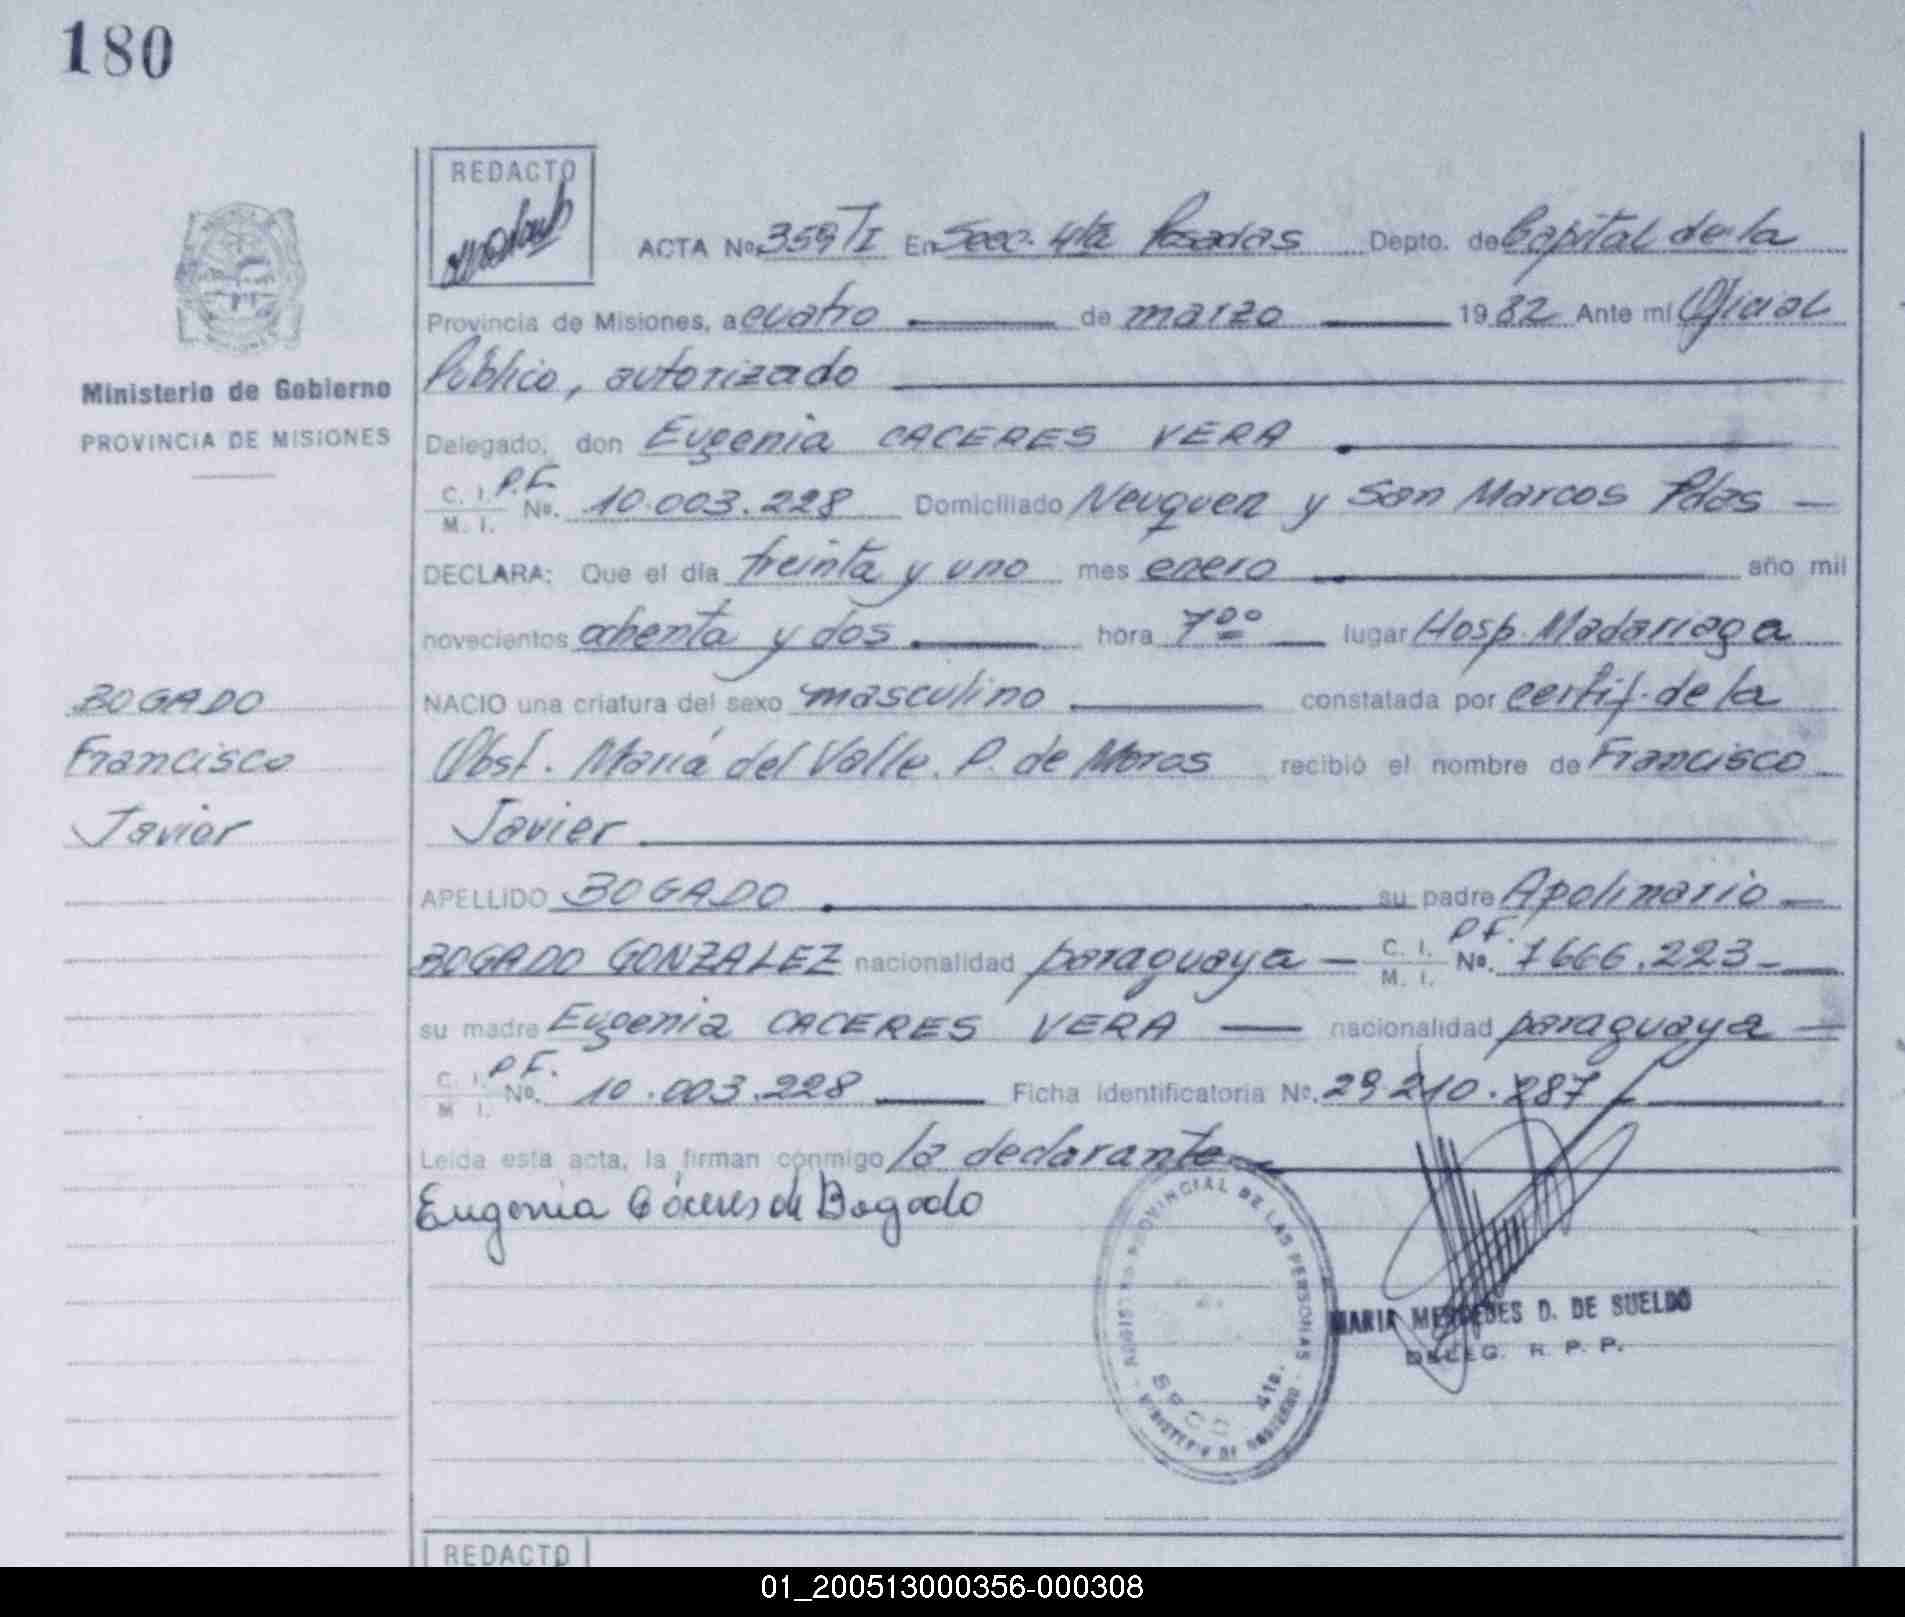 180
REDACTO
ACTA Nº 359/I En Secc. 4ta Posadas Depto. de Capital de la
Provincia de Misiones, a cuatro de marzo 1982 Ante mí Oficial
Público, autorizado
Ministerio de Gobierno
PROVINCIA DE MISIONES
Delegado, don Eugenia CACERES VERA
C. I. P.F.
M. I. Nº. 10.003.228 Domiciliado Neuquen y San Marcos Pdas
DECLARA: Que el día treinta y uno mes enero año mil
novecientos ochenta y dos hora 7 00 lugar Hosp. Madariaga
BOGADO
Francisco
Javier
NACIO una criatura del sexo masculino constatada por certif. de la
Obst. María del Valle P. de Moros recibió el nombre de Francisco
Javier
APELLIDO BOGADO su padre Apolinario
BOGADO GONZALEZ nacionalidad paraguaya C. I. M. I. P.F. Nº. 7666.223
su madre Eugenia CACERES VERA nacionalidad paraguaya
C. I. M. I. P.F. Nº. 10.003.228 Ficha identificatoria Nº. 29.210.287
Leída esta acta, la firman conmigo la declarante
Eugenia Cáceres de Bogado
REGISTRO PROVINCIAL DE LAS PERSONAS
SECC. 4ta.
MINISTERIO DE GOBIERNO
MARIA MERCEDES D. DE SUELDO
DELEG. R. P. P.
REDACTO
01_200513000356-000308